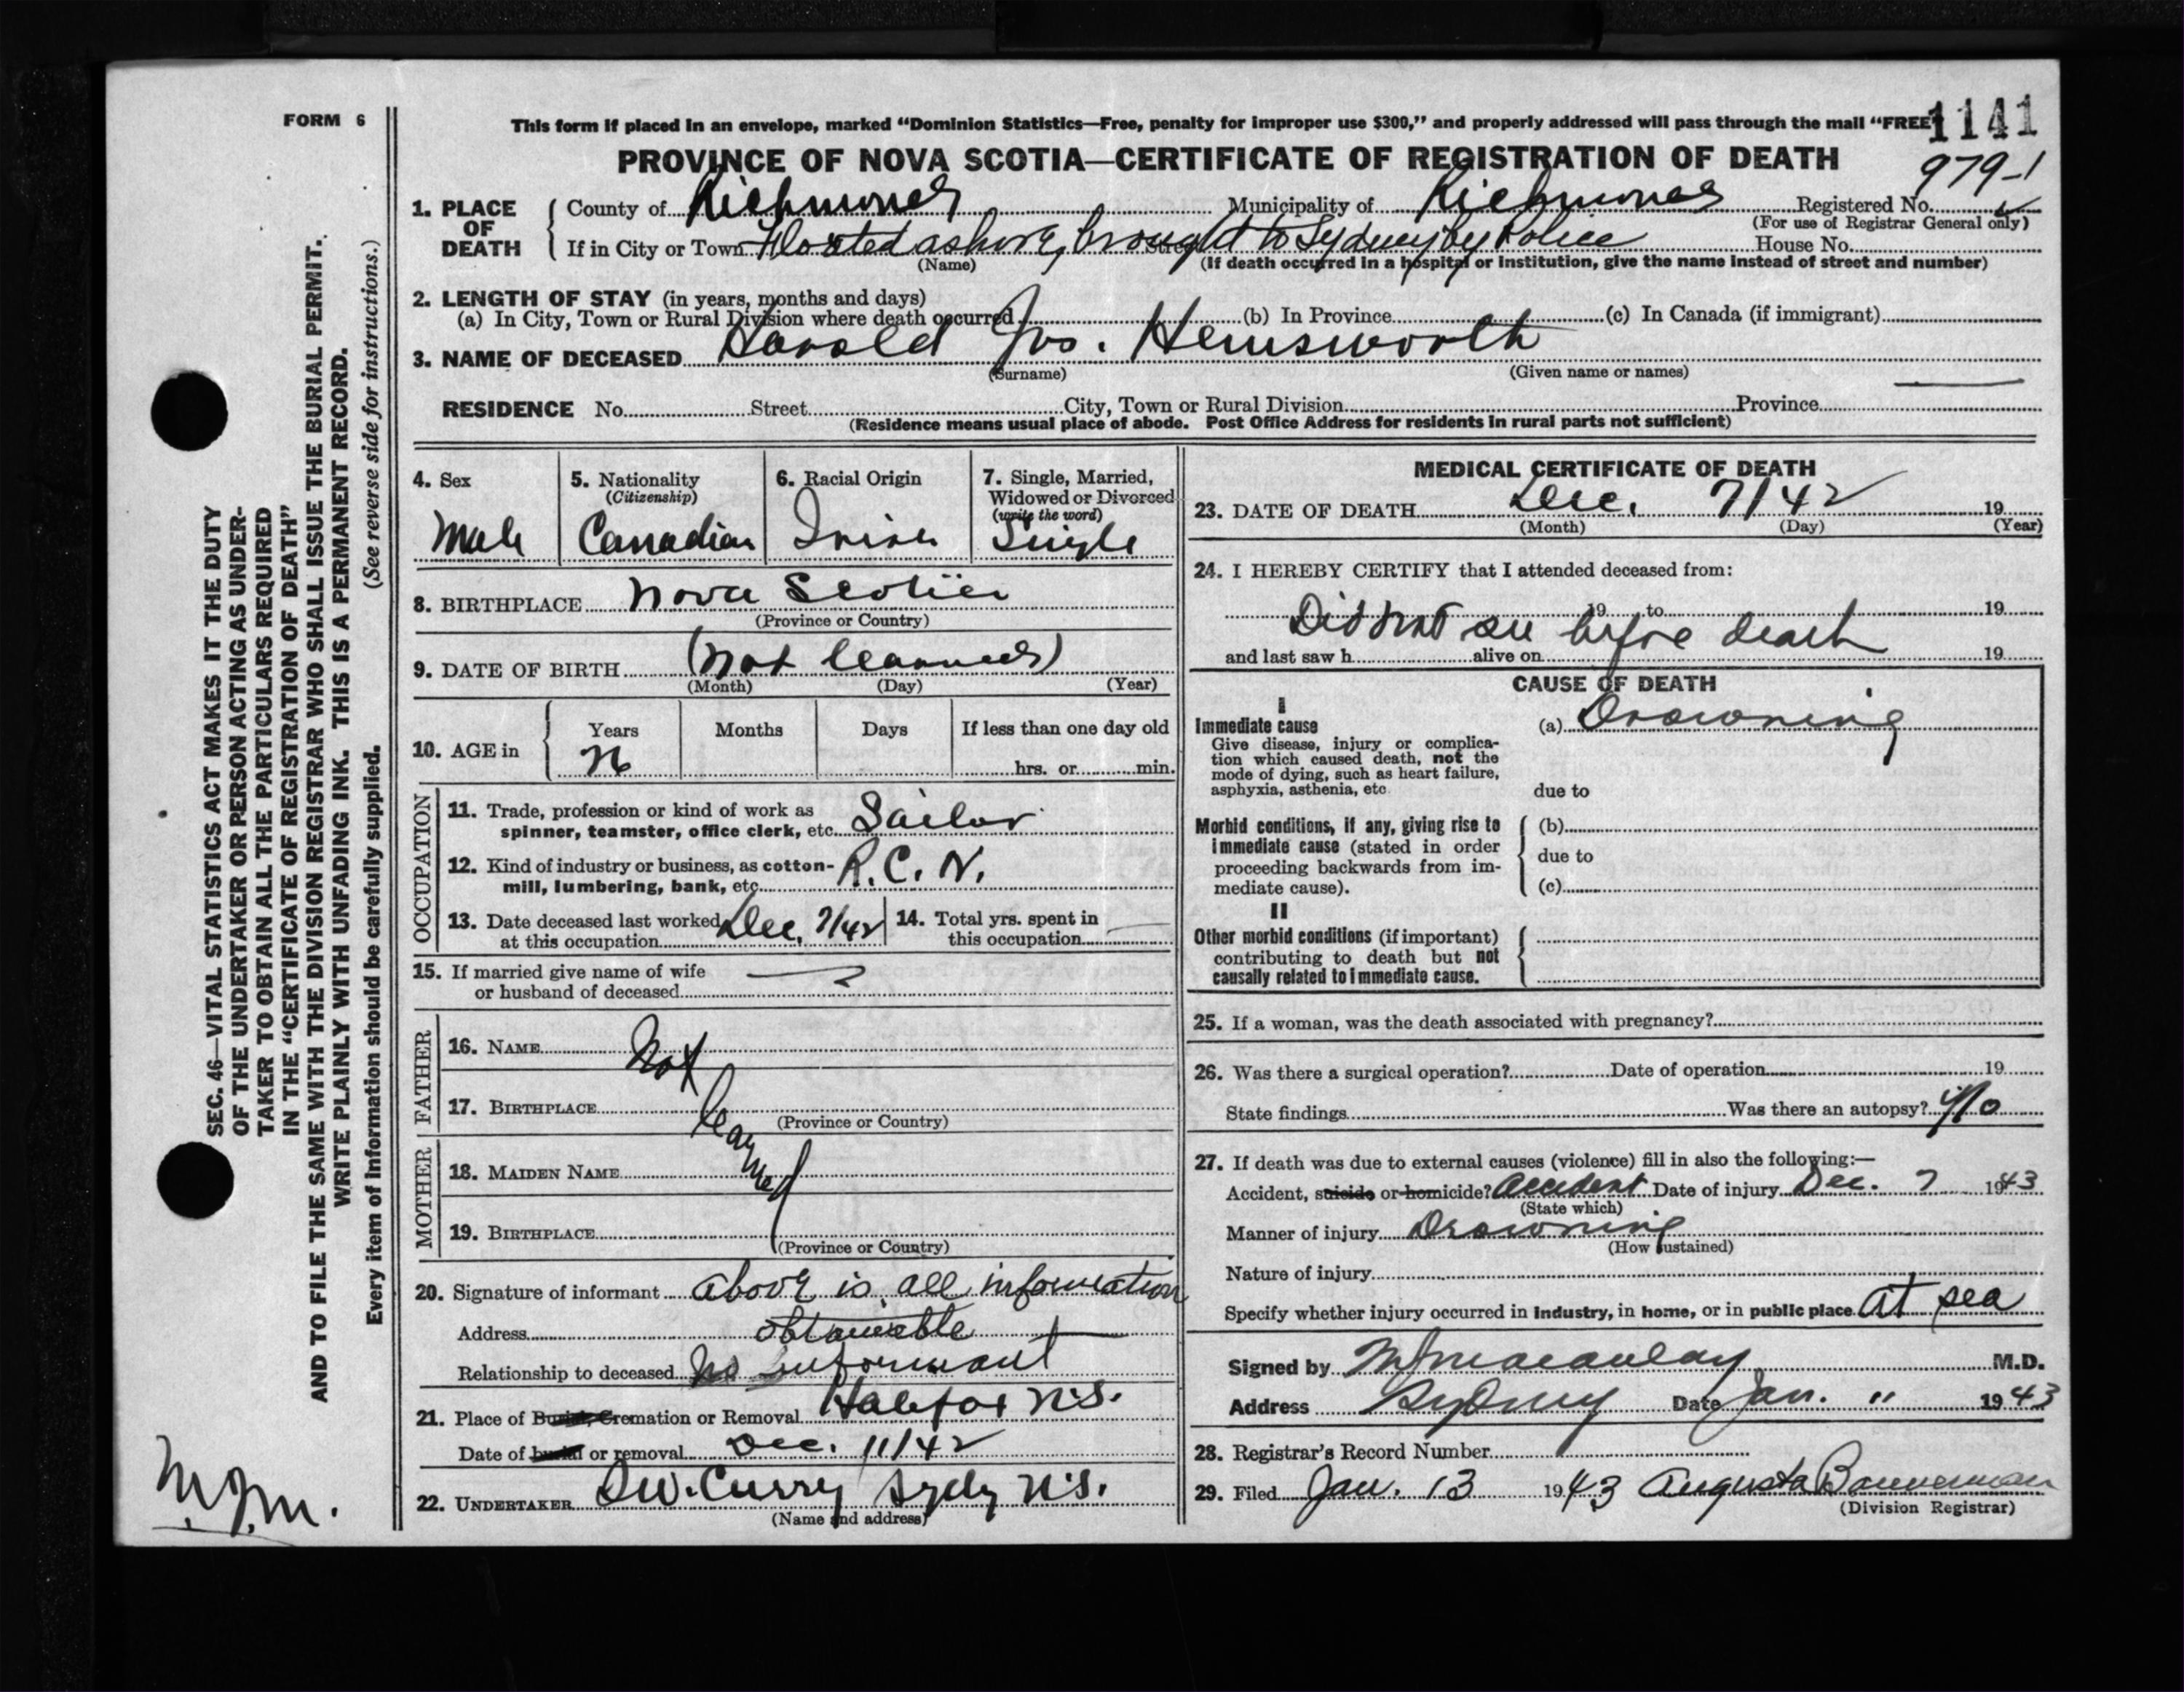 FORM 6
This form if placed in an envelope, marked "Dominion Statistics—Free, penalty for improper use $300," and properly addressed will pass through the mail "FREE"
1141
PROVINCE OF NOVA SCOTIA—CERTIFICATE OF REGISTRATION OF DEATH
979-1
1. PLACE OF DEATH
County of Richmond Municipality of Richmond Registered No.
(For use of Registrar General only)
If in City or Town Floated ashore, brought to Sydney by Police Street House No.
(Name) (If death occurred in a hospital or institution, give the name instead of street and number)
2. LENGTH OF STAY (in years, months and days)
(a) In City, Town or Rural Division where death occurred (b) In Province (c) In Canada (if immigrant)
3. NAME OF DECEASED Harold Jno. Hemsworth
(Surname) (Given name or names)
RESIDENCE No. Street City, Town or Rural Division Province
(Residence means usual place of abode. Post Office Address for residents in rural parts not sufficient)
4. Sex
Male
5. Nationality
(Citizenship)
Canadian
6. Racial Origin
7. Single, Married,
Widowed or Divorced
(write the word)
Single
8. BIRTHPLACE Nova Scotia
(Province or Country)
9. DATE OF BIRTH (not learned)
(Month) (Day) (Year)
10. AGE in
Years Months Days If less than one day old
hrs. or min.
OCCUPATION
11. Trade, profession or kind of work as
spinner, teamster, office clerk, etc. Sailor
12. Kind of industry or business, as cotton-
mill, lumbering, bank, etc. R.C.N.
13. Date deceased last worked
at this occupation Dec. 7/42
14. Total yrs. spent in
this occupation
15. If married give name of wife
or husband of deceased
FATHER
16. NAME Not
17. BIRTHPLACE learned
(Province or Country)
MOTHER
18. MAIDEN NAME
19. BIRTHPLACE
(Province or Country)
20. Signature of informant above is all information
Address obtainable
Relationship to deceased No informant
21. Place of Burial, Cremation or Removal Halifax N.S.
Date of burial or removal Dec. 11/42
22. UNDERTAKER D.W. Curry Sydy N.S.
(Name and address)
MEDICAL CERTIFICATE OF DEATH
23. DATE OF DEATH Dec. 7/42 19
(Month) (Day) (Year)
24. I HEREBY CERTIFY that I attended deceased from:
19 to 19
Did not see before death
and last saw h alive on 19
CAUSE OF DEATH
I
Immediate cause
Give disease, injury or complica-
tion which caused death, not the
mode of dying, such as heart failure,
asphyxia, asthenia, etc
(a) Drowning
due to
Morbid conditions, if any, giving rise to
immediate cause (stated in order
proceeding backwards from im-
mediate cause).
(b)
due to
(c)
II
Other morbid conditions (if important)
contributing to death but not
causally related to immediate cause.
25. If a woman, was the death associated with pregnancy?
26. Was there a surgical operation? Date of operation 19
State findings Was there an autopsy? No
27. If death was due to external causes (violence) fill in also the following:—
Accident, suicide or homicide? Accident Date of injury Dec. 7 1943
(State which)
Manner of injury Drowning
(How sustained)
Nature of injury
Specify whether injury occurred in industry, in home, or in public place At sea
Signed by Macaulay M.D.
Address Sydney Date Jan. 11 1943
28. Registrar's Record Number
29. Filed Jan. 13 1943 Augusta Bannerman
(Division Registrar)
SEC. 46—VITAL STATISTICS ACT MAKES IT THE DUTY
OF THE UNDERTAKER OR PERSON ACTING AS UNDER-
TAKER TO OBTAIN ALL THE PARTICULARS REQUIRED
IN THE "CERTIFICATE OF REGISTRATION OF DEATH"
AND TO FILE THE SAME WITH THE DIVISION REGISTRAR WHO SHALL ISSUE THE BURIAL PERMIT.
WRITE PLAINLY WITH UNFADING INK. THIS IS A PERMANENT RECORD.
Every item of information should be carefully supplied. (See reverse side for instructions.)